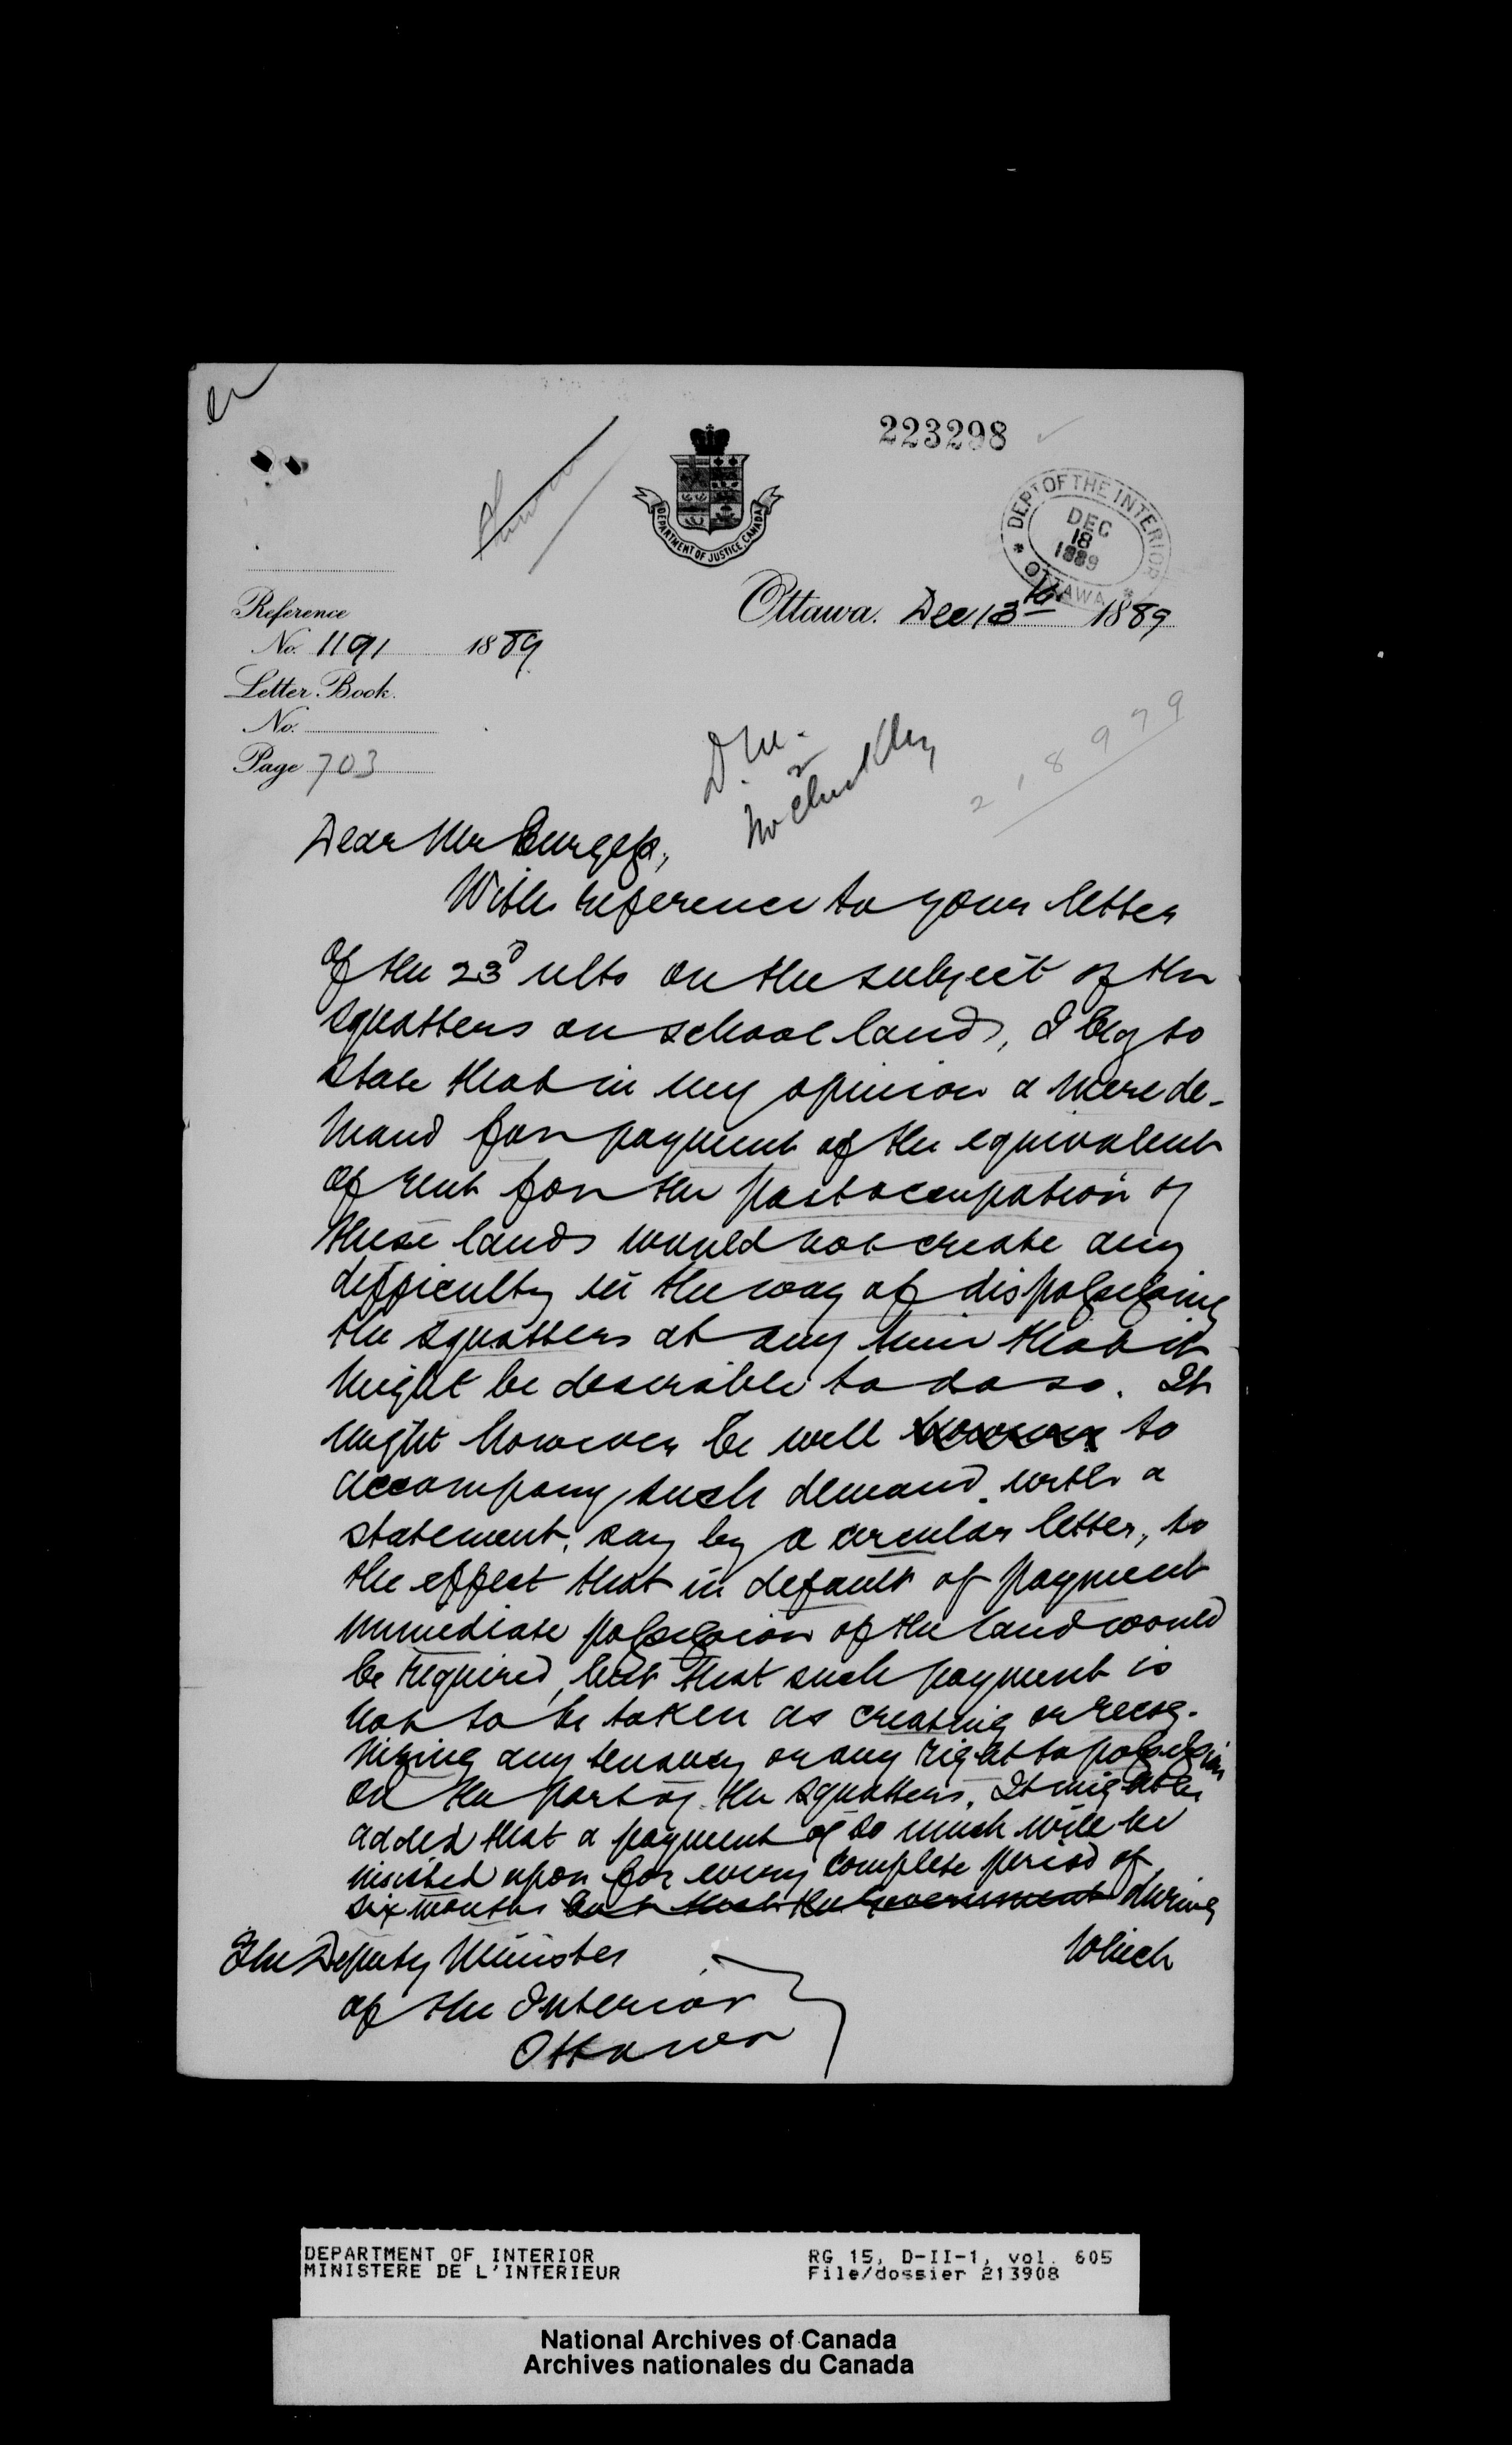 223298
DEPARTMENT OF JUSTICE, CANADA
DEPT OF THE INTERIOR
DEC
18
1889
OTTAWA
Ottawa. Dec 13th 1889
Reference
No. 1191 1889
Letter Book.
No.
Page 703
D.M.
Dear Mr Burgess,
With reference to your letter
of the 23d ulto on the subject of the
squatters on school lands, I beg to
state that in my opinion a mere de-
mand for payment of the equivalent
of rent for the past occupation of
these lands would not create any
difficulty in the way of dispossessing
the squatters at any time that it
might be desirable to do so. It
might however be well however to
accompany such demand with a
statement, say by a circular letter, to
the effect that in default of payment
immediate possession of the land would
be required, but that such payment is
not to be taken as creating or recog-
nizing any tenancy or any right to possession
on the part of the squatters. It might be
added that a payment of so much will be
insisted upon for every complete period of
six months but that the Government during
which
The Deputy Minister
of the Interior
Ottawa
DEPARTMENT OF INTERIOR
MINISTERE DE L'INTERIEUR
RG 15, D-II-1, vol. 605
File/dossier 213908
National Archives of Canada
Archives nationales du Canada